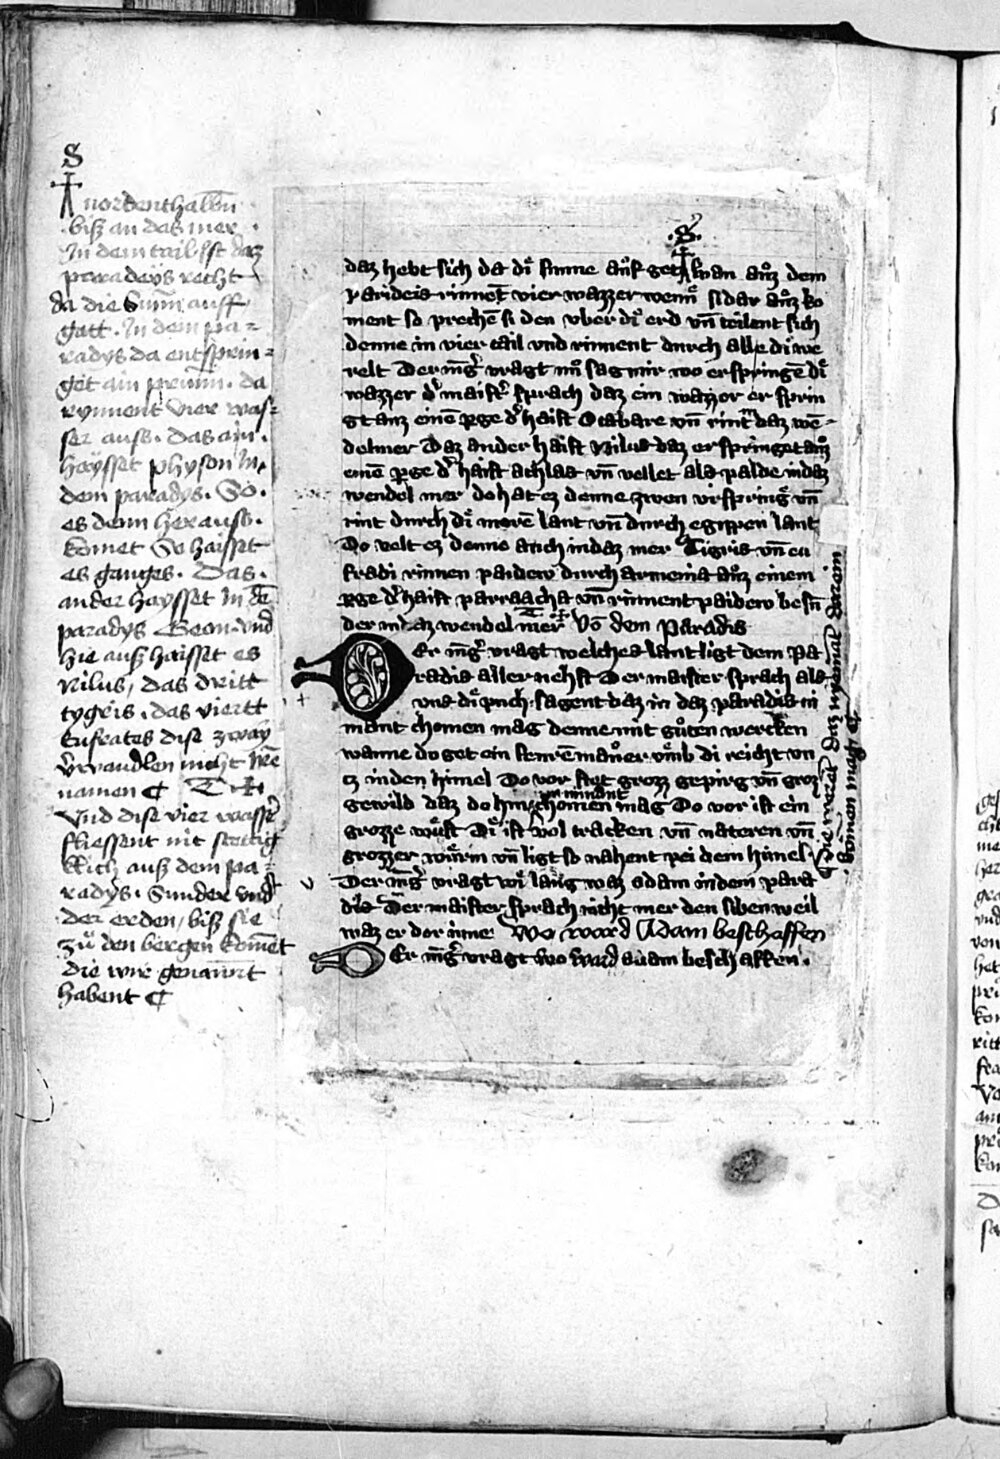 S
nordenthalbñ
biß an das mer.
In dem tail ist daz
paradeÿs recht
da die Sunn auff
gatt. In dem pa=
radÿs da entsprin=
get ain prunn. da
rynnent vier was=
ser auß. das ain.
haÿsset physon In
dem paradÿs. So.
es denn herauß.
komet So haisset
es ganges. Das.
ander haÿsset In dē
paradÿs Geon. vnd
hie auß haisset es
Nilus, das dritt
tygris. das viertt
Eufrates dise zwaÿ
v̉wandlen nicht Ire
namen ¶
Vnd dise vier wasser
fliessent nit stettig
klich auß dem pa=
radÿs. Sunder vnd
der erden, biß sie
zů den bergen komēt
die wir genannt
habent ¶
.S.
daz hebt sich da dı̊ sunne aůf get wan aůz dem
parideis rinnēt vier wazzer wenn sı̊ dar aůz ko
ment so prechē si den vber dı̊ erd vn̄ teilent sich
denne in vier tail vnd rinnent durch alle di we
relt Der iūg̉ vragt nů sag mir wo erspringē dı̊
wazzer d̉ maist̉ sprach daz ein wazzer er sprin
gt auz einē perge d̉ haist Ocabare vn̄ rint in daz wē=
delmer Daz ander haist Nilus daz er springet aůz
einē perge d̉ haist achlas vn̄ vellet als palde in daz
wendel mer do hat ez denne zwen vrspring vn̄
rint durch dı̊ morē lant vn̄ durch egippen lant
Do velt ez denne auch in daz mer Tigris vn̄ eu
fradi rinnen paidew durch armenia aůz einem
perge d̉ haist parraacha vn̄ rinnent paidew besū
der in daz wendel mer Vō dem Paradis
Er iūg̉ vragt welches lant ligt dem pa
radis aller nehst Der maister sprach als
vns dı̊ puch sagent daz in daz paradis ni
mant chomen mag denne mit gůten wercken
wanne do get ein fewrē maůer vmb di reicht vn
tz in den himel Do vor stet grozz gepirg vn̄ groz
gewild daz do hin nimant chomen mag Do vor ist ein
grozze wůst Dı̊ ist vol tracken vn̄ nateren vn̄
grozzer wůrm vn̄ ligt so nahent pei dem himel
Der iūg̉ vragt wı̊ lang waz adam in dem para
dis Der maister sprach nicht mer den siben weil
waz er dor inne Wo ward Adam beschaffen
Er iūg̉ vragt wo ward adam beschaffen.
daz nyemant darein
komen mag ¶